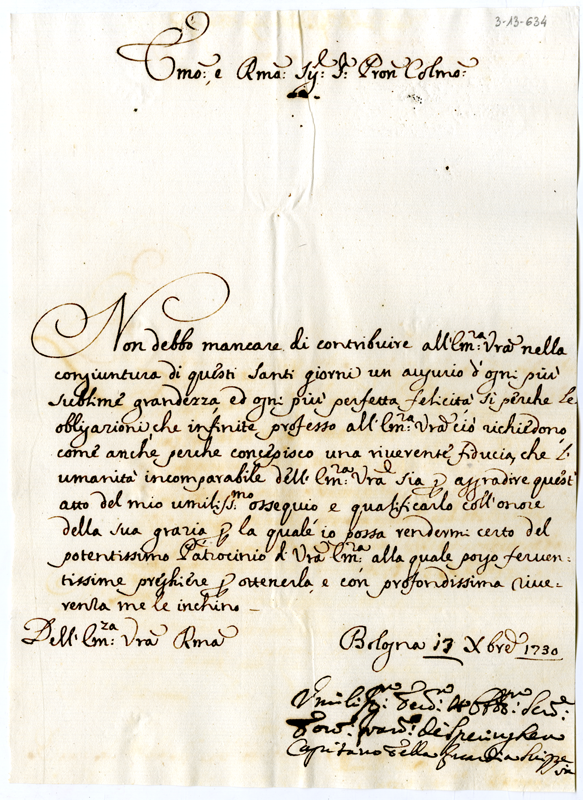 3-13-634
Emo: e Rmo: Sig.r Sr. Pron Colmo:
Non debbo mancare di contribuire all'Em:za Vra nella
congiuntura di questi Santi giorni un augurio d'ogni più
sublime grandezza, ed ogni più perfetta felicità si perche le
obligazioni che infinite professo all'Em:za Vra ciò richiedono,
come anche perche concepisco una riverente fiducia, che l'
umanità incomparabile dell'Em:za Vra Sia p aggradire quest'
atto del mio umiliss:mo ossequio e qualificarlo coll'onore
della sua grazia p la quale io possa rendermi certo del
potentissimo Patrocinio di Vra Em:za alla quale porgo ferven-
tissime preghiere p ottenerla, e con profondissima rive-
renza me le inchino _
Dell'Em:za Vra Rma
Bologna 17 Xbre 1730
Umiliss:mo
Capitano della Guardia Svizze
ra